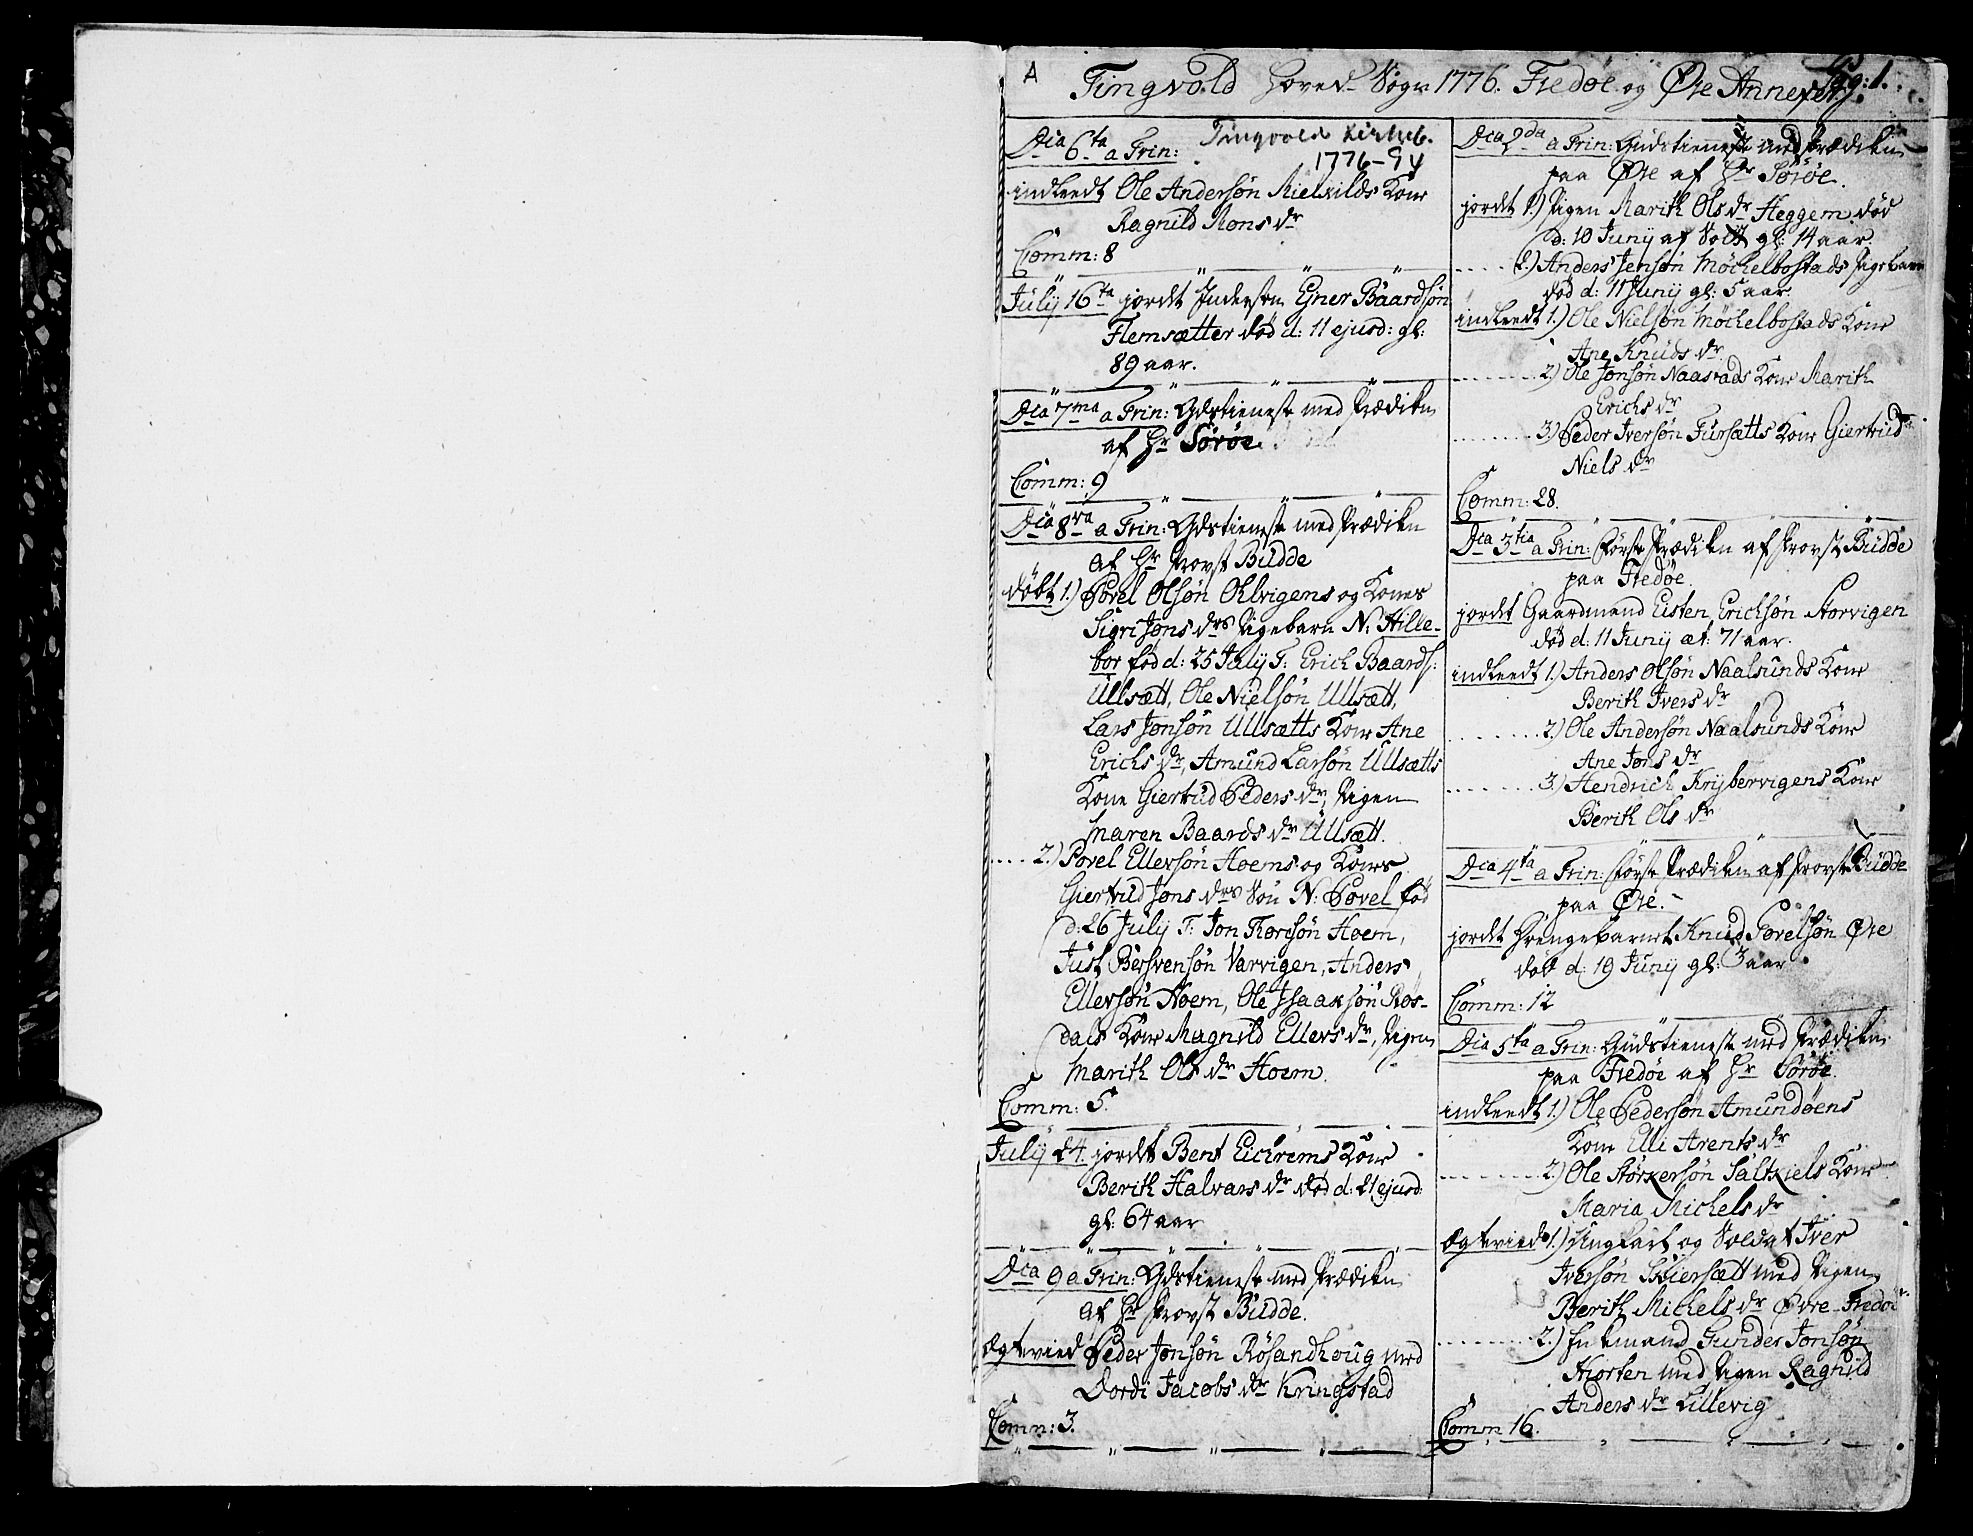 A Tingvold Hoved Sogn 1776. Fredöe og Öre Annexer. Pag: 1.
Dca 6ta a Trin:
Tingvold Kirkeb.
1776-94
indleedt Ole Andersön Mielkilds Kone
Ragnild Mons dr
Comm: 8
July 16ta jordet Inderste Ejner Baardsön
Flemsætter död d: 11 ejusd: gl:
89 aar.
Dca 7ma a Trin: Gdstieneste med Prædiken
af Hr Söröe.
Comm: 9
Dca 8va a Trin: Gdstieneste med Prædiken
af Hr Provst Budde
döbt 1.) Povel Olsön Ohlvigens og Kones
Sigri Jons drs Pigebarn N: Hille-
bor föd d: 25 July T: Erich Baards:
Ullsætt, Ole Nielsön Ullsætt,
Lars Jonsön Ullsætts Kone Ane
Erichs dr, Amund Larsön Ullsætts
Kone Giertrud Peders dr, Pigen
Maren Baards dr Ullsætt.
2.) Povel Ellersön Hoems og Kones
Giertrud Jons drs Sön N: Povel föd
d: 26 July T: Jon Torersön Hoem,
Just Bersvensön Varvigen, Anders
Ellersön Hoem, Ole Isaaksön Ros-
dals Kone Magnild Ellers dr, Pigen
Marith Ols dr Hoem.
Comm: 5.
July 24. jordet Bent Eichrems Kone
Berith Halvars dr död d: 21 ejusd:
gl: 64 aar
Dca 9 a Trin: Gdstieneste med Prædiken
af Hr Provst Budde.
Ægtevied Peder Jonsön Rösandhoug med
Dordi Jacobs dr Kringstad
Comm: 3.
Dca 2da a Trin: Gudstieneste med Prædiken
paa Öre af Hr Söröe.
jordet 1.) Pigen Marith Ols dr Heggem död
d: 10 Junij af gl: 14 aar.
2.) Anders Jensön Möchelbostads Pigebarn
död d: 11 Junij gl: 5 aar.
indleedt 1.) Ole Nielsön Möchelbostads Kone
Ane Knuds dr.
2.) Ole Jonsön Naastads Kone Marith
Erichs dr
3.) Peder Iversön Fursætts Kone Giertrud
Niels dr
Comm: 28.
Dca 3tia a Trin: förste Prædiken af Provst Budde
paa Fredöe.
jordet Gaardmand Eisten Erichsön Storvigen
död d: 11 Junij æt: 71 aar.
indleedt 1.) Anders Olsön Naalsunds Kone
Berith Ivers dr
2.) Ole Andersön Naalsunds Kone
Ane Jons dr
3.) Hendrich Krybervigens Kone
Berith Ols dr
Dca 4ta a Trin: förste Prædiken af Provst Budde
paa Öre.
jordet Drengebarnet Knud Povelsön Öre
död d: 19 Junij gl: 3 aar.
Comm: 12
Dca 5ta a Trin: Gudstieneste med Prædiken
paa Fredöe af Hr Söröe.
indleedt 1.) Ole Pedersön Amundöens
Kone Elli Arents dr
2.) Ole Störkersön Saltkiels Kone
Maria Michels dr
Ægtevied 1.) Ungkarl og Soldat Iver
Iversön med Pigen
Berith Michels dr Övre-Fredöe
2.) Enkemand Gunder Jonsön
Horten med Pigen Ragnild
Anders dr Lillevig
Comm 16.